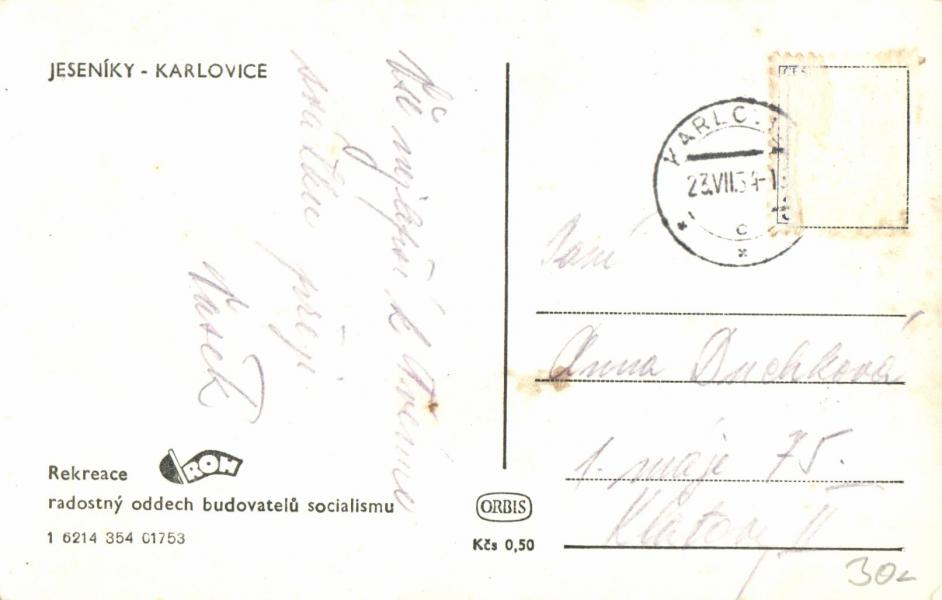 JESENÍKY - KARLOVICE
Vše nejlepší k Tvému
svátku přeji
Vašek
Rekreace ROH
radostný oddech budovatelů socialismu
1 6214 354 01753
ORBIS
Kčs 0,50
23.VII.54-1
C
Paní
Anna Duchková
1. máje 75.
Klatovy II
30